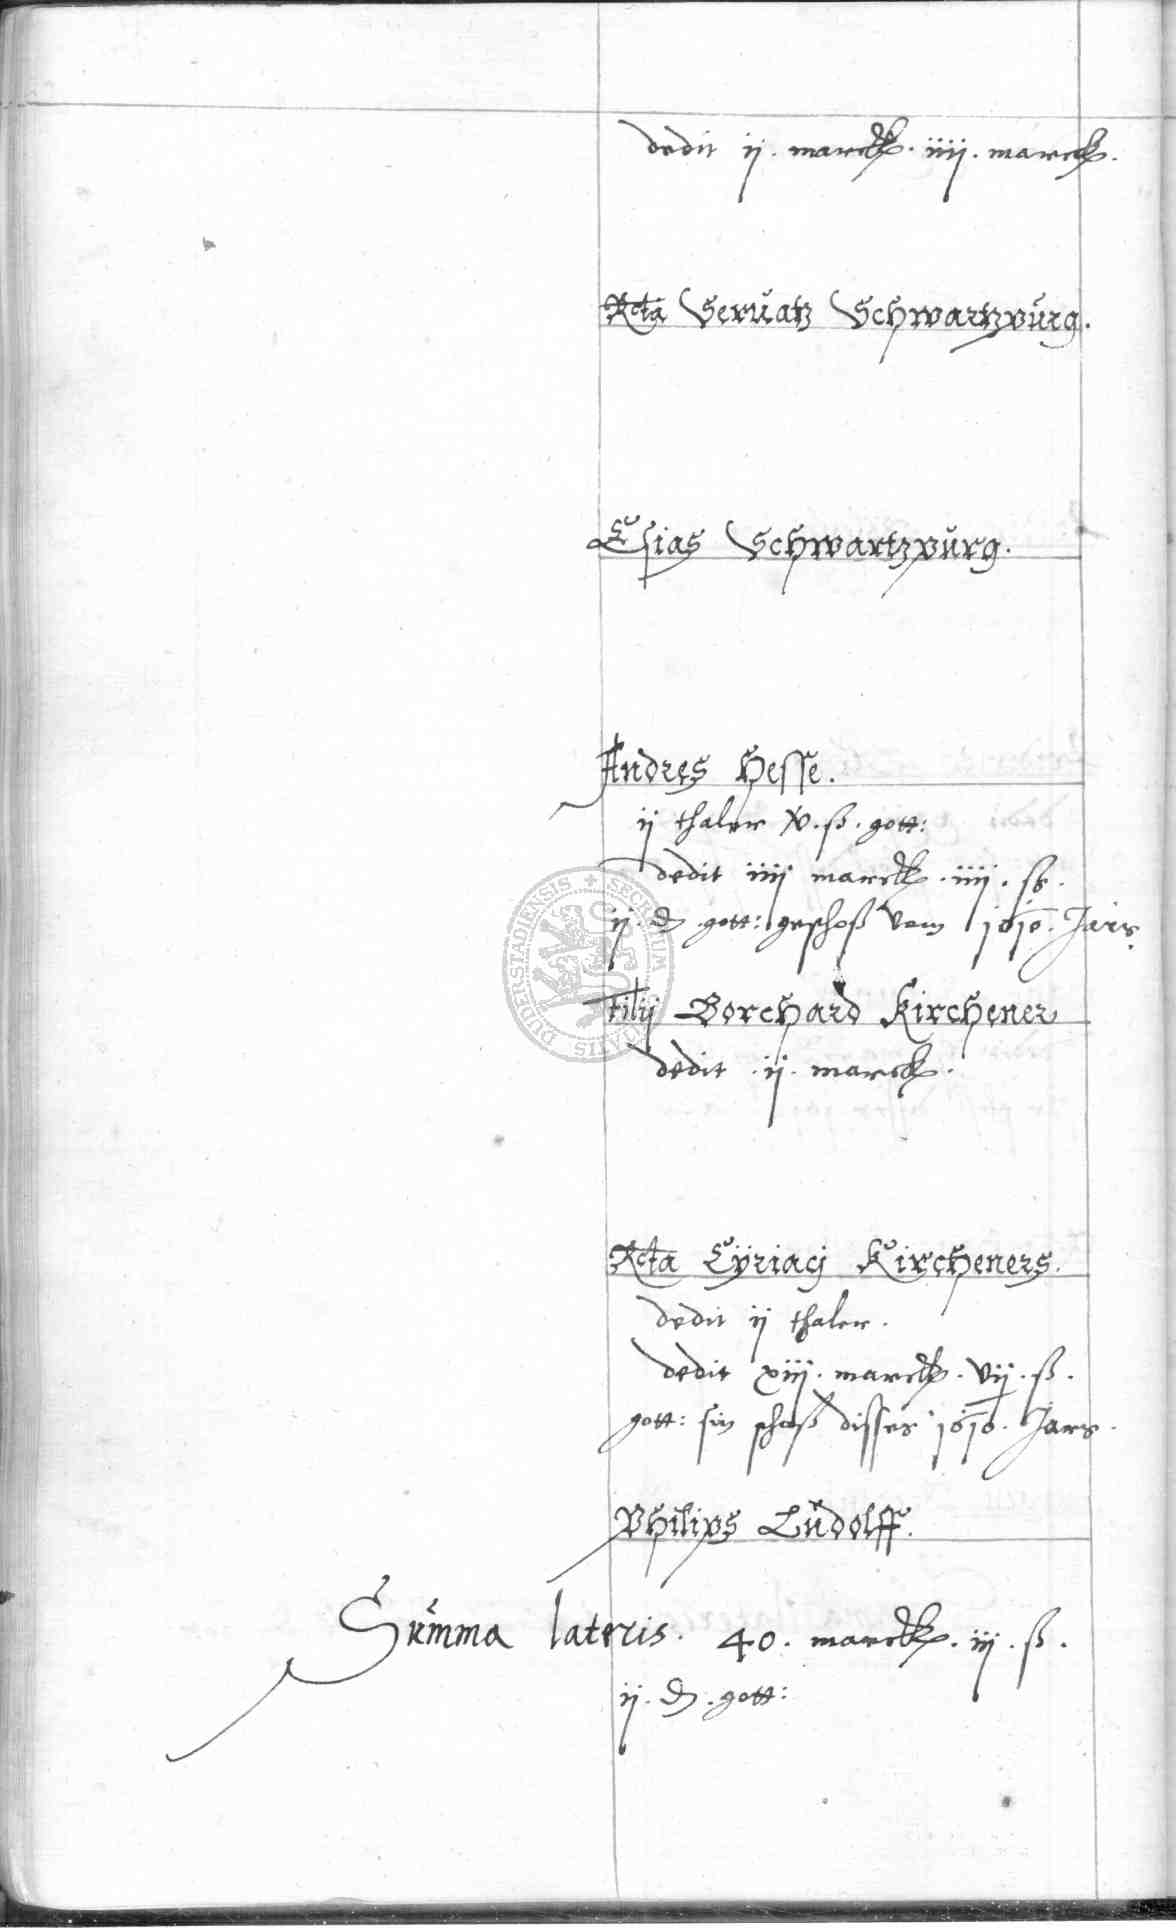 dedit ij. marck. iiij. marck.
Rcta Seruatz Schwartzburg.
Esias Schwartzburg.
Andres Hesse.
ij thaler x. ß. gott:
dedit iiij marck. iiij. ß.
ij. ₰. gott: geschoß vom 1610. Jars
filij Borchard Kirchener
dedit .ij. marck.
Rcta Cÿriacj Kircheners.
dedit ij thaler.
dedit xiij. marck. vij. ß.
gott: sin schoß disses 1610. Jars.
Philips Ludolff.
Summa lateris. 40. marck. iij. ß.
ij. ₰. gott:
DUDERSTADIENSIS + SECRETUM